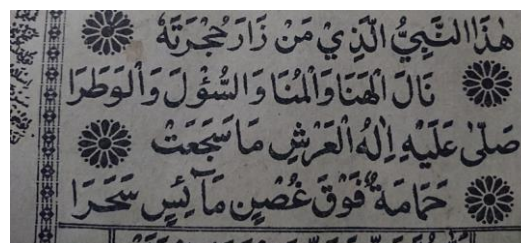 هٰذَا النَّبِيُّ الَّذِيْ مَنْ زَارَ حُجْرَتَهٗ
نَالَ الْهَنَا وَالْمُنَا وَالسُّؤَلَ وَالْوَطَرَا
صَلّٰى عَلَيْهِ اِلٰهُ الْعَرْشِ مَا سَجَعَتْ
حَمَامَةٌ فَوْقَ غُصْنٍ مَآئِسٍ سَحَرَا